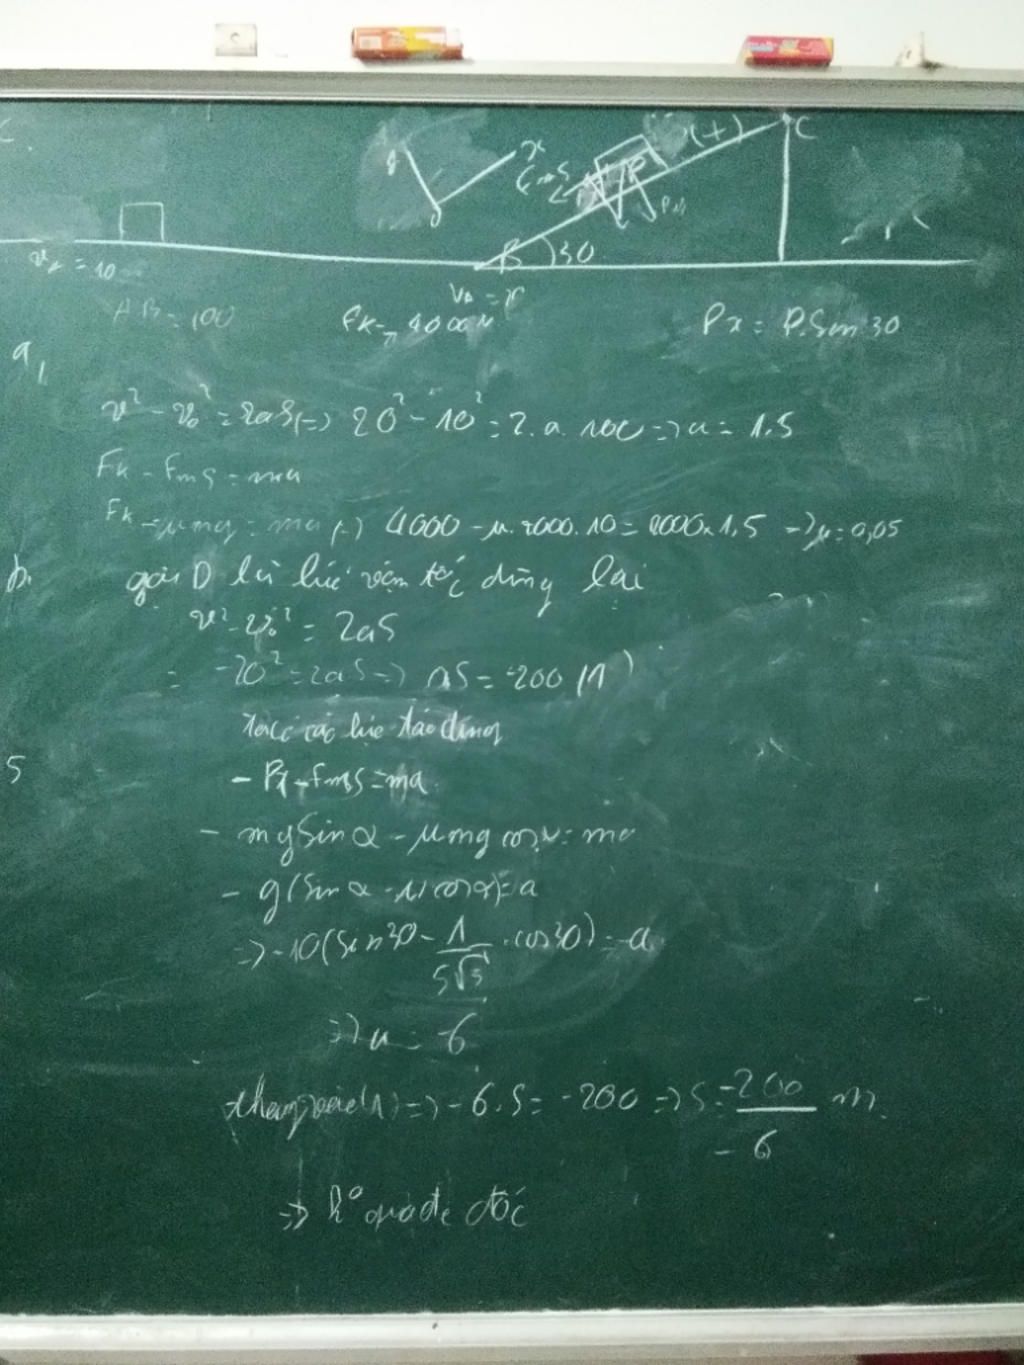 C
(+)
C
30
B
v_A = 10
AB = 100
Fk = 4000N
Px = P.Sin 30
a,
v² - v₀² = 2aS (=) 20² - 10² = 2.a.100 => a = 1.5
Fk - Fms = ma
Fk - μmg = ma (=) 4000 - μ.2000.10 = 2000×1,5 => μ = 0,05
b.
gọi D là lúc vận tốc dừng lại
v² - v₀² = 2aS
= -20² = 2aS => aS = -200 (1)
5
- Px - Fms = ma
- mgSinα - μmg cosα = ma
- g(Sinα - μ cosα) = a
=> -10(Sin30 - 1/5√3 .cos30) = a
=> a = -6
thay vào (1) => -6.S = -200 => S = -200/-6 m.
=> k° qua đc dốc